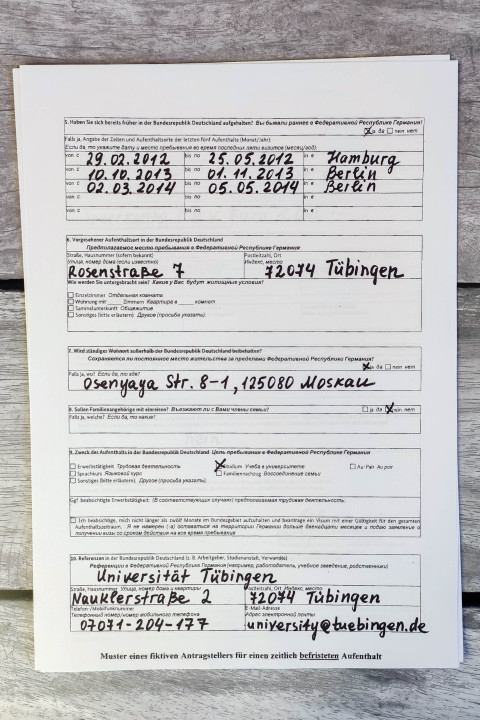 5. Haben Sie sich bereits früher in der Bundesrepublik Deutschland aufgehalten? Вы бывали раннее в Федеративной Республике Германия?
ja да nein нет
Falls ja, Angabe der Zeiten und Aufenthaltsorte der letzten fünf Aufenthalte (Monat/Jahr):
Если да, то укажите дату и место пребывания во время последних пяти визитов (месяц/год):
von с 29.02.2012 bis по 25.05.2012 in в Hamburg
von с 10.10.2013 bis по 01.11.2013 in в Berlin
von с 02.03.2014 bis по 05.05.2014 in в Berlin
von с bis по in в
von с bis по in в
6. Vorgesehener Aufenthaltsort in der Bundesrepublik Deutschland
Предполагаемое место пребывания в Федеративной Республике Германия
Straße, Hausnummer (sofern bekannt) Postleitzahl, Ort
Улица, номер дома (если известно) Индекс, место
Rosenstraße 7 72074 Tübingen
Wie werden Sie untergebracht sein? Какие у Вас будут жилищные условия?
Einzelzimmer Отдельная комната
Wohnung mit ____ Zimmern Квартира в ____ комнат
Sammelunterkunft Общежитие
Sonstiges (bitte erläutern) Другое (просьба указать):
7. Wird ständiger Wohnort außerhalb der Bundesrepublik Deutschland beibehalten?
Сохраняется ли постоянное место жительства за пределами Федеративной Республики Германия?
ja да nein нет
Falls ja, wo? Если да, то где?
Osenyaya Str. 8-1, 125080 Moskau
8. Sollen Familienangehörige mit einreisen? Въезжают ли с Вами члены семьи?
ja да nein нет
Falls ja, welche? Если да, то какие?
9. Zweck des Aufenthalts in der Bundesrepublik Deutschland Цель пребывания в Федеративной Республике Германия
Erwerbstätigkeit Трудовая деятельность Studium Учеба в университете Au Pair Au pair
Sprachkurs Языковой курс Familiennachzug Воссоединение семьи
Sonstiges (bitte erläutern) Другое (просьба указать):
Ggf beabsichtigte Erwerbstätigkeit: (В соответствующих случаях) предполагаемая трудовая деятельность:
Ich beabsichtige, mich nicht länger als zwölf Monate im Bundesgebiet aufzuhalten und beantrage ein Visum mit einer Gültigkeit für den gesamten
Aufenthaltszeitraum. Я не намерен (-а) оставаться на территории Германии дольше двенадцати месяцев и подаю заявление о
получении визы со сроком действия на все время пребывания
10. Referenzen in der Bundesrepublik Deutschland (z. B. Arbeitgeber, Studienanstalt, Verwandte)
Референции в Федеративной Республике Германия (например, работодатель, учебное заведение, родственники)
Universität Tübingen
Straße, Hausnummer Улица, номер дома и квартиры Postleitzahl, Ort Индекс, место
Nauklerstraße 2 72074 Tübingen
Telefon-/Mobilfunknummer E-Mail-Adresse
Телефонный номер/номер мобильного телефона Адрес электронной почты
07071-204-177 university@tuebingen.de
Muster eines fiktiven Antragstellers für einen zeitlich befristeten Aufenthalt